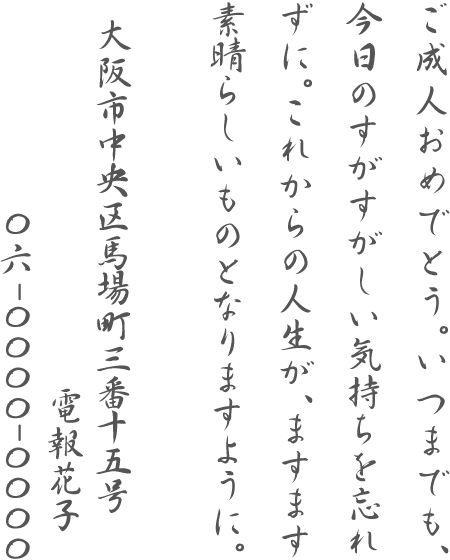 ご成人おめでとう。いつまでも、
今日のすがすがしい気持ちを忘れ
ずに。これからの人生が、ますます
素晴らしいものとなりますように。
大阪市中央区馬場町三番十五号
電報花子
〇六ー〇〇〇〇ー〇〇〇〇